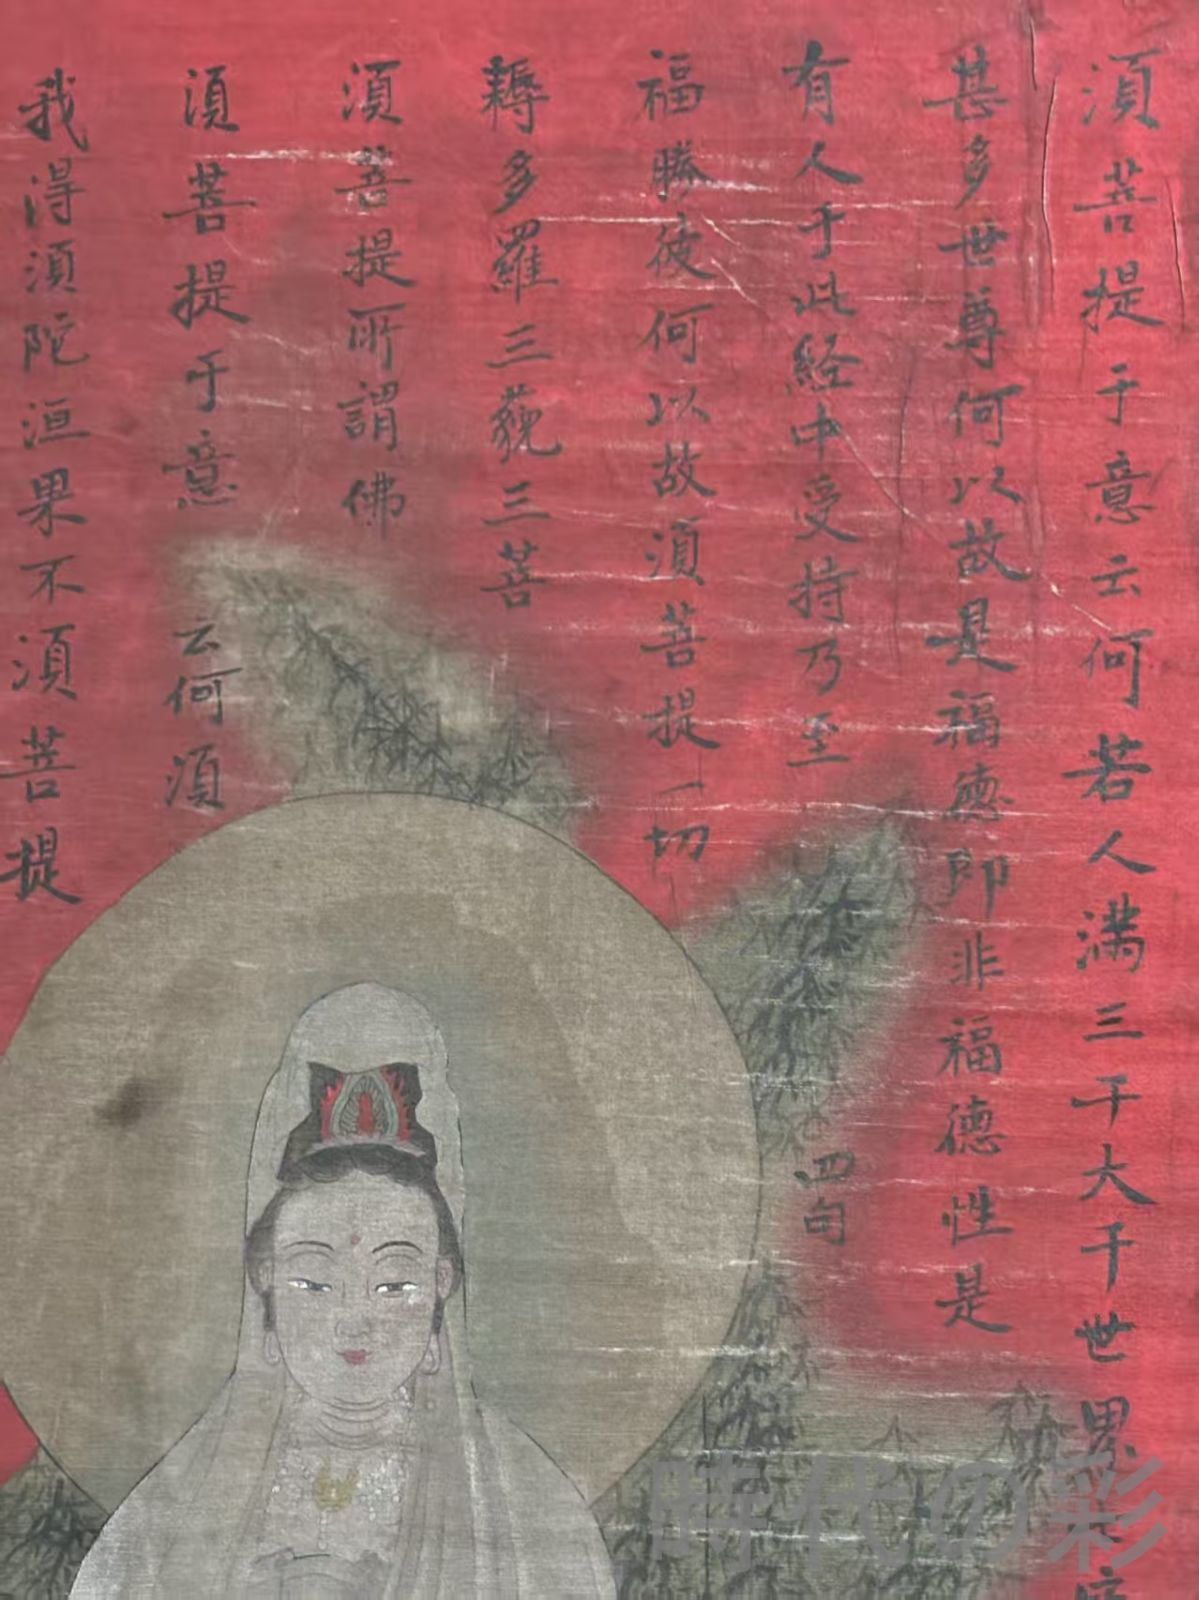 須菩提于意云何若人滿三千大千世界七
甚多世尊何以故是福德即非福德性是
有人于此經中受持乃至四句
福勝彼何以故須菩提一切
耨多羅三藐三菩
須菩提所謂佛
須菩提于意云何須
我得須陀洹果不須菩提
時代の彩